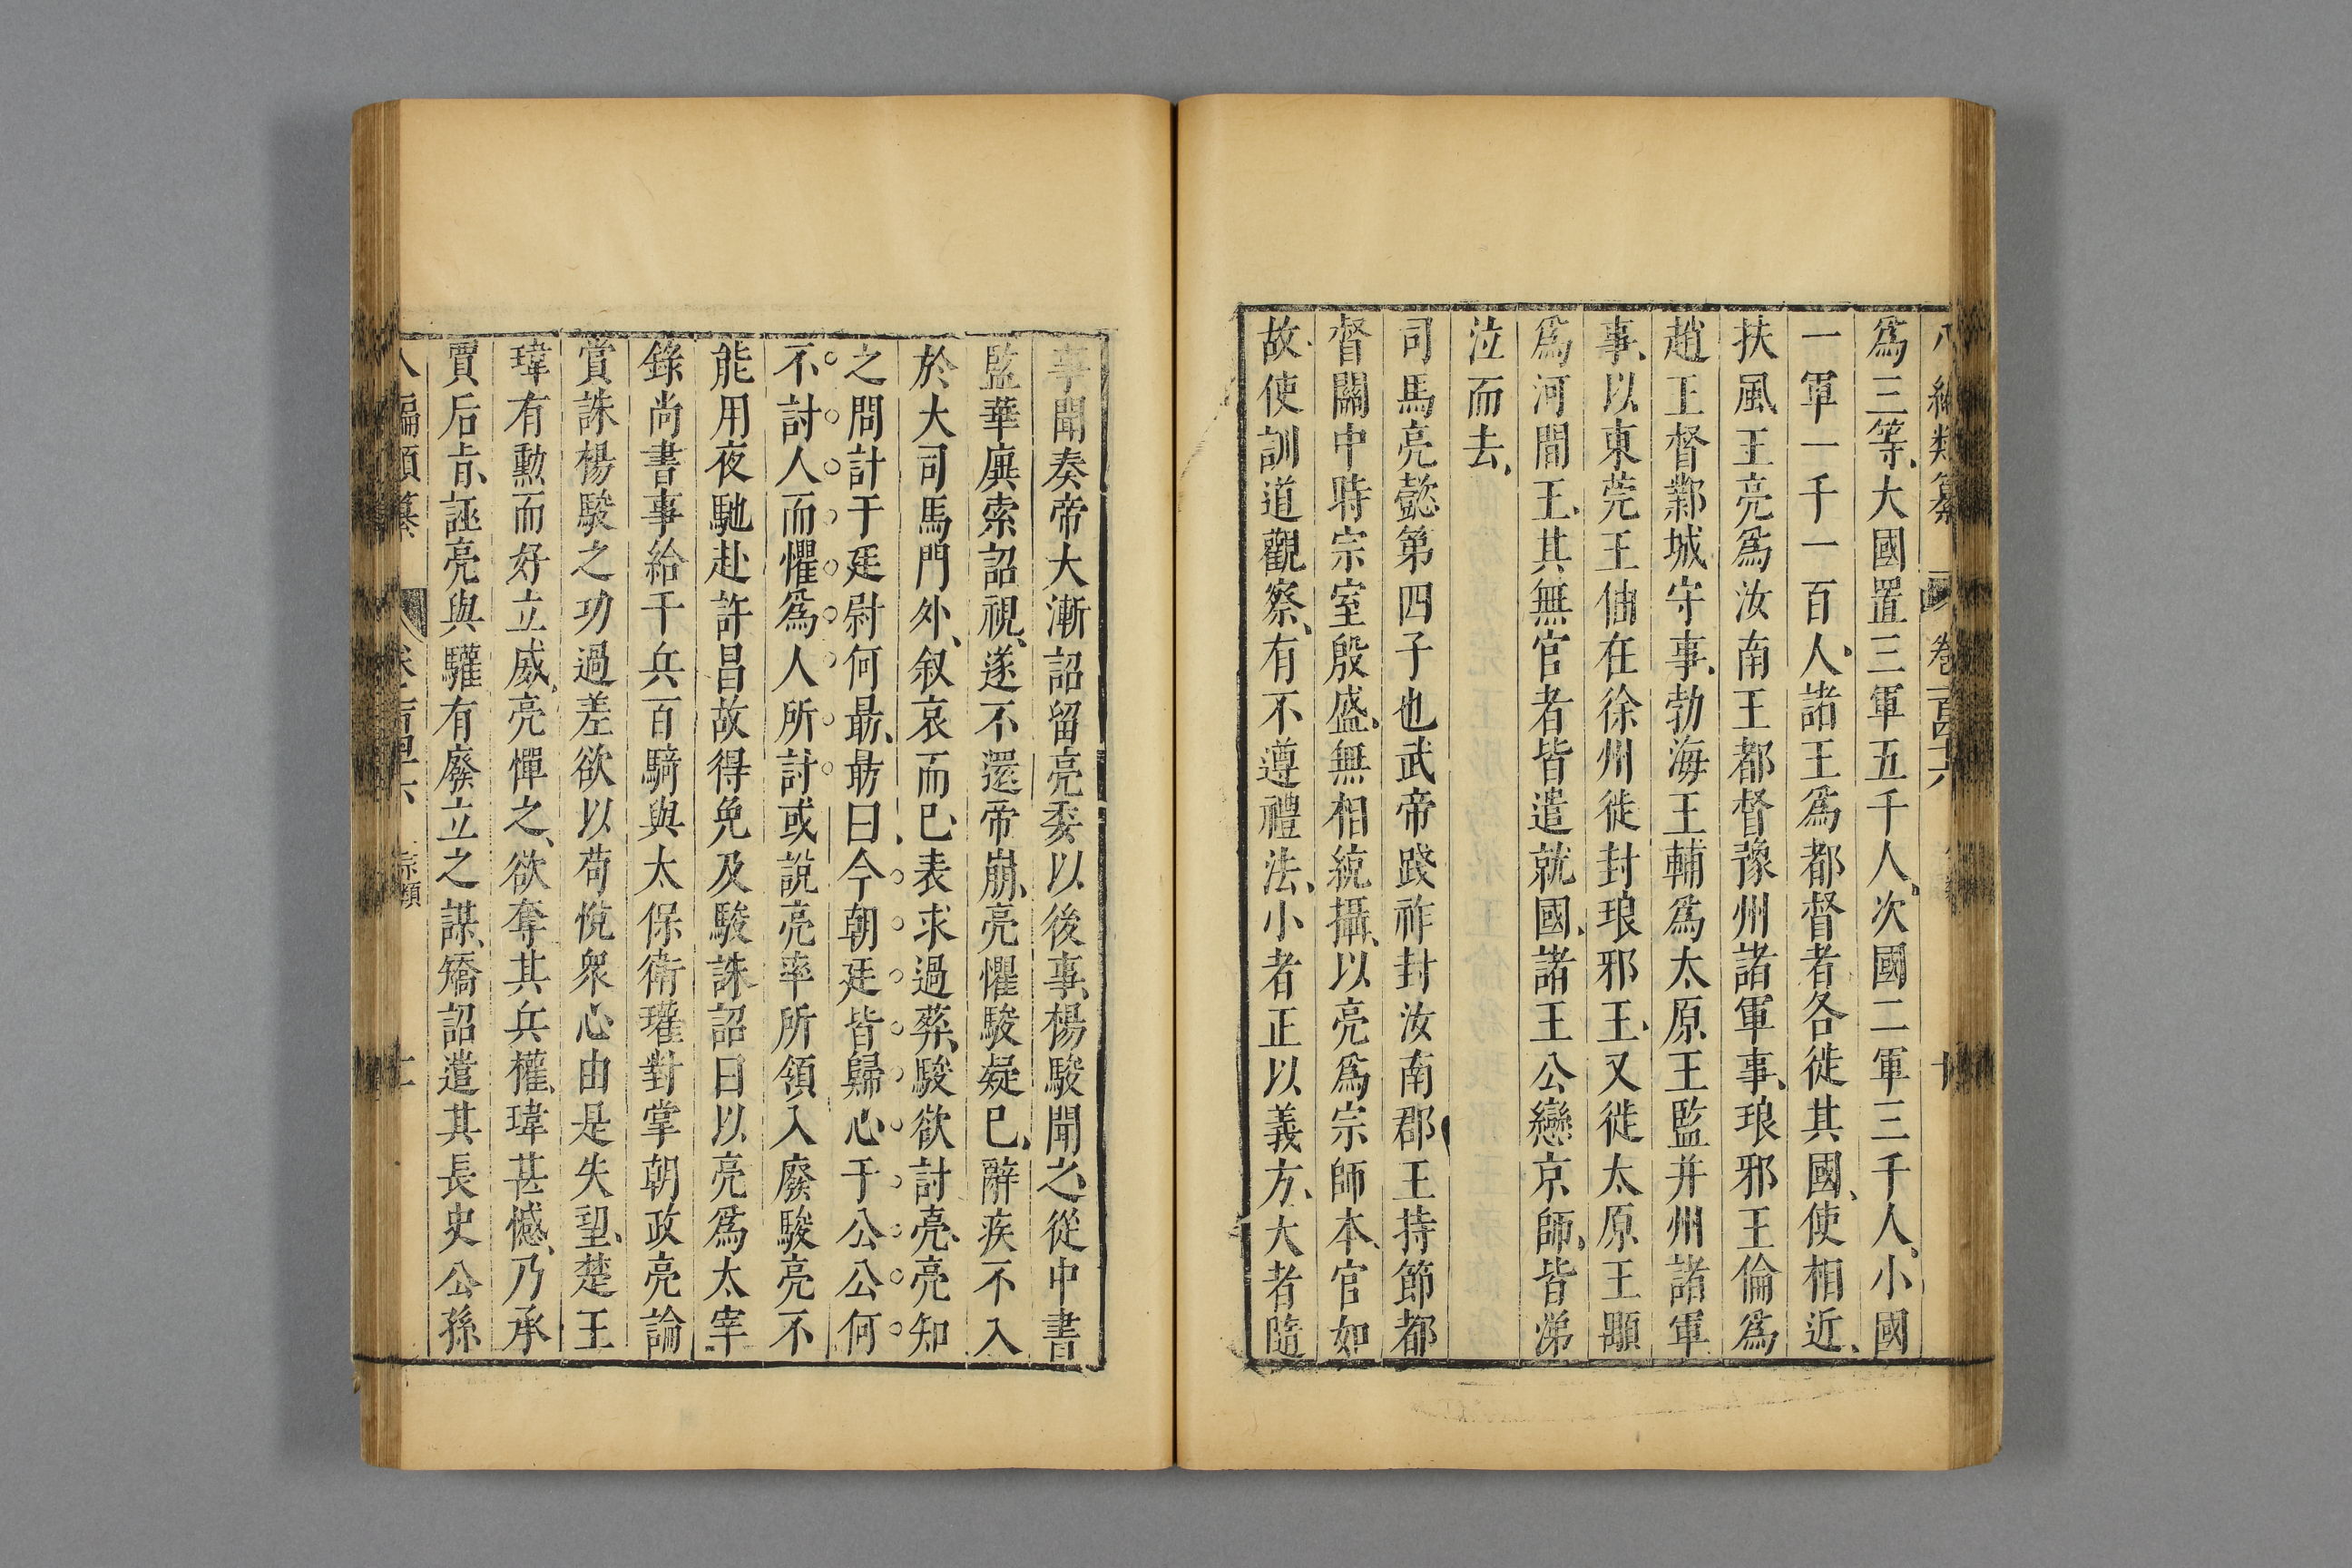 八編類纂 卷一百四十六 十
爲三等、大國置三軍五千人、次國二軍三千人、小國
一軍一千一百人、諸王爲都督者各徙其國、使相近、
扶風王亮爲汝南王都督豫州諸軍事、琅邪王倫爲
趙王督鄴城守事、勃海王輔爲太原王監并州諸軍
事、以東莞王伷在徐州徙封琅邪王、又徙太原王顒
爲河間王、其無官者皆遣就國、諸王公戀京師、皆涕
泣而去、
司馬亮懿第四子也武帝踐祚封汝南郡王持節都
督關中時宗室殷盛、無相統攝、以亮爲宗師本官如
故、使訓道觀察、有不遵禮法、小者正以義方、大者隨
事聞奏帝大漸詔留亮委以後事、楊駿聞之從中書
監華廙索詔視、遂不還帝崩、亮懼駿疑已、辭疾不入
於大司馬門外、叙哀而已、表求過葬、駿欲討亮、亮知
之問計于廷尉何勗、勗曰今朝廷皆歸心于公公何
不討人而懼爲人所討或說亮率所領入廢駿亮不
能用夜馳赴許昌故得免及駿誅詔曰以亮爲太宰
錄尚書事給千兵百騎與太保衛瓘對掌朝政亮論
賞誅楊駿之功過差欲以苟悅衆心由是失望、楚王
瑋有勳而好立威、亮憚之、欲奪其兵權、瑋甚憾、乃承
賈后旨、誣亮與瓘有廢立之謀、矯詔遣其長史公孫
八編類纂 卷一百四十六 宗類 十一